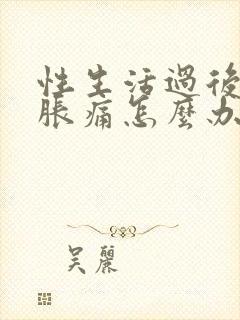 性生活過後
脹痛怎麼办
吴麗